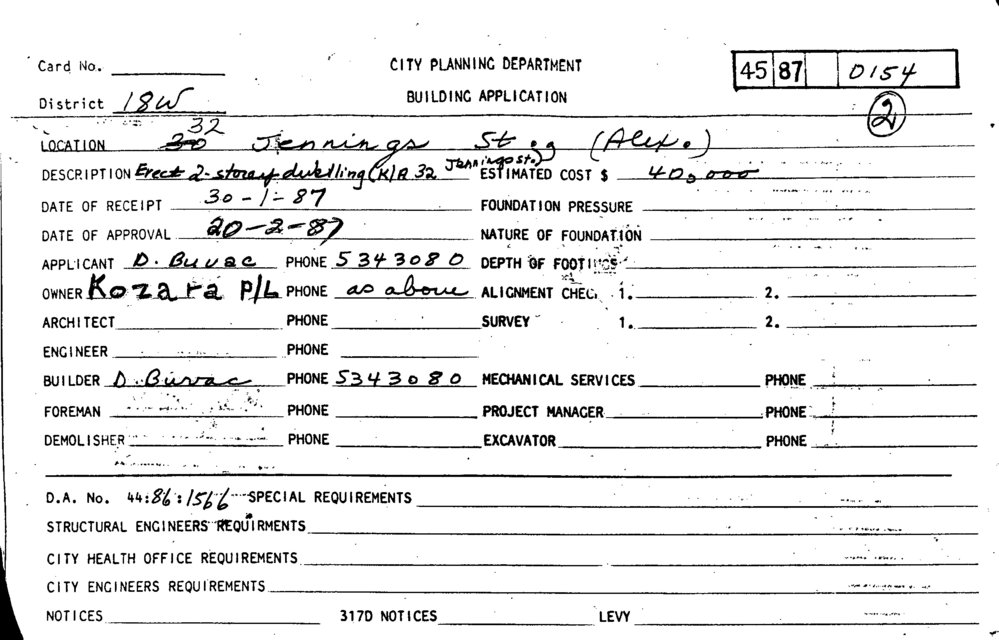 Card No. CITY PLANNING DEPARTMENT 45 87 0154
District 18W BUILDING APPLICATION 2
32
LOCATION 30 Jennings St (Alex.)
DESCRIPTION Erect 2-storey dwelling (K/A 32 Jennings St.) ESTIMATED COST $ 40,000
DATE OF RECEIPT 30-1-87 FOUNDATION PRESSURE
DATE OF APPROVAL 20-2-87 NATURE OF FOUNDATION
APPLICANT D. Buvac PHONE 5343080 DEPTH OF FOOTINGS
OWNER Kozara P/L PHONE as above ALIGNMENT CHEC. 1. 2.
ARCHITECT PHONE SURVEY 1. 2.
ENGINEER PHONE
BUILDER D. Buvac PHONE 5343080 MECHANICAL SERVICES PHONE
FOREMAN PHONE PROJECT MANAGER PHONE
DEMOLISHER PHONE EXCAVATOR PHONE
D.A. No. 44:86:1566 SPECIAL REQUIREMENTS
STRUCTURAL ENGINEERS REQUIRMENTS
CITY HEALTH OFFICE REQUIREMENTS
CITY ENGINEERS REQUIREMENTS
NOTICES 317D NOTICES LEVY